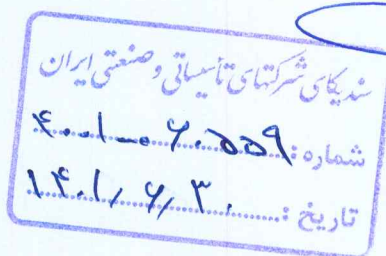 سندیکای شرکتهای تأسیساتی و صنعتی ایران
شماره: ۴۰۰۱-۰۶۰۵۵۹
تاریخ: ۱۴۰۱/۶/۳۰